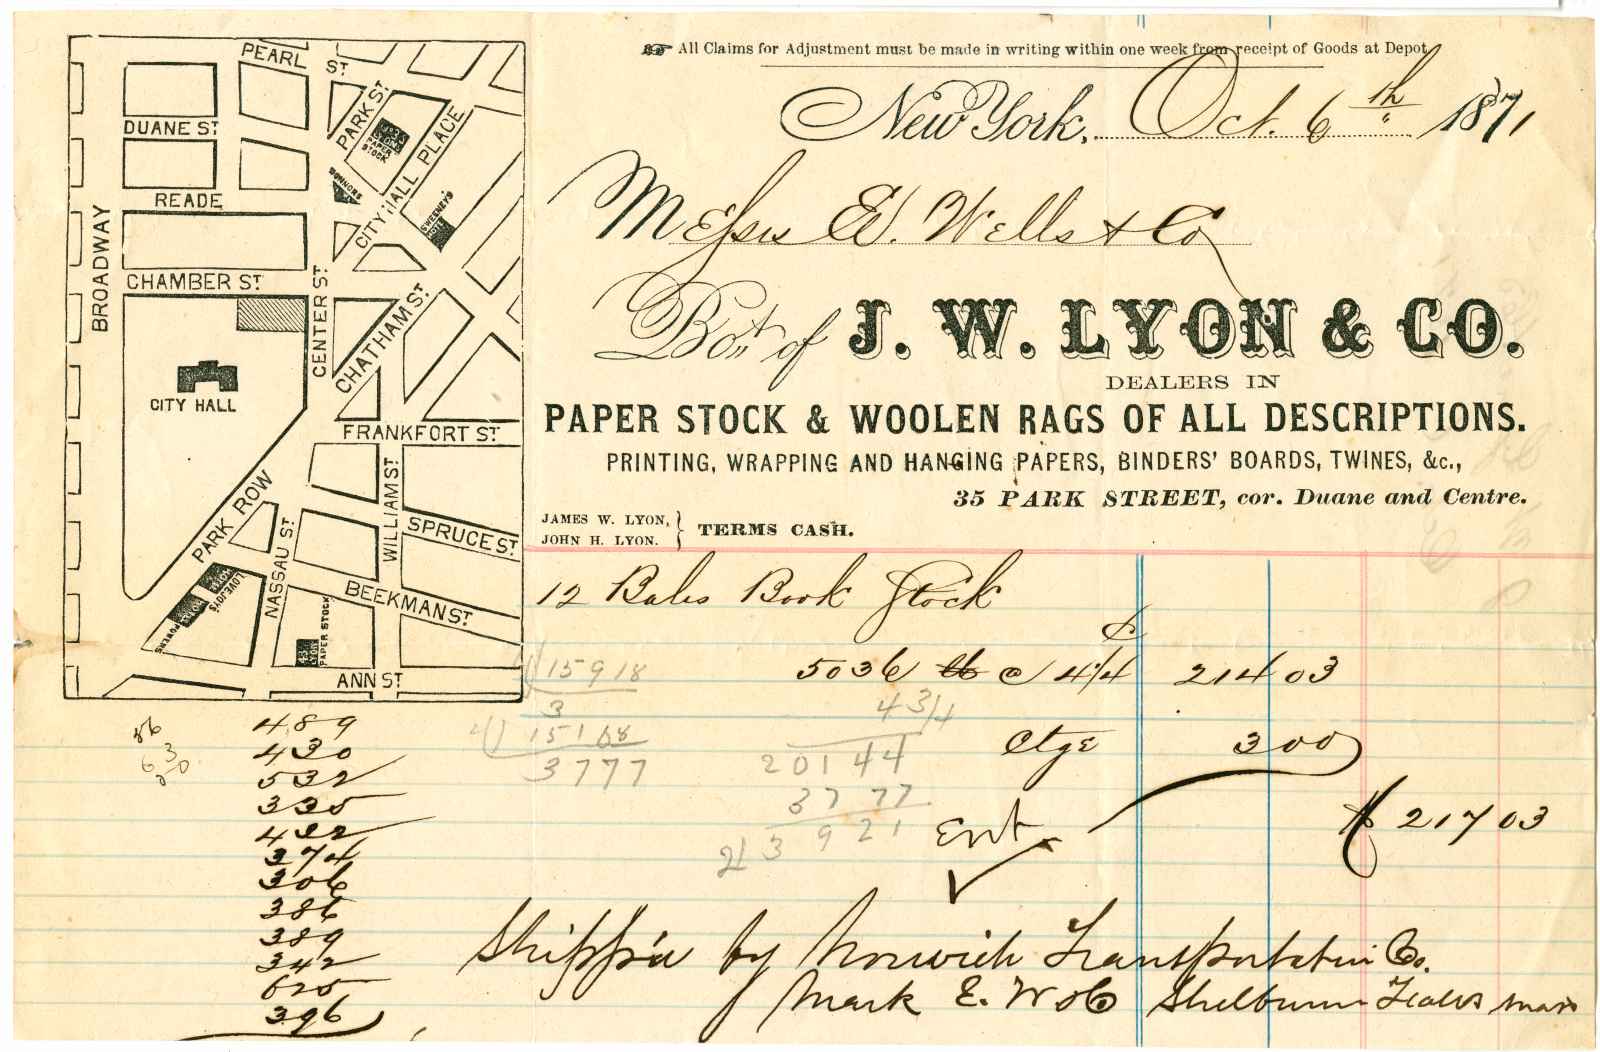 All Claims for Adjustment must be made in writing within one week from receipt of Goods at Depot
New York, Oct. 6th 1871
Messrs E. Wells & Co
Bot. of J. W. LYON & CO.
DEALERS IN
PAPER STOCK & WOOLEN RAGS OF ALL DESCRIPTIONS.
PRINTING, WRAPPING AND HANGING PAPERS, BINDERS' BOARDS, TWINES, &c.,
35 PARK STREET, cor. Duane and Centre.
JAMES W. LYON,
JOHN H. LYON.
TERMS CASH.
PEARL ST
DUANE ST
READE
CHAMBER ST
BROADWAY
CENTER ST
PARK ST
CITY HALL PLACE
PAPER STOCK
SWEENEY'S HOTEL
CHATHAM ST
CITY HALL
FRANKFORT ST
PARK ROW
NASSAU ST
WILLIAM ST
SPRUCE ST
BEEKMAN ST
LOVEJOY'S HOTEL
POWERS
LYON PAPER STOCK
ANN ST
12 Bales Book Stock
5036 lb @ 4 1/4 ¢ 214 03
Ctge 3 00
$ 217 03
Ent.
15918
3
15168
3777
4 3/4
20144
3777
23921
489
430
532
335
432
374
306
386
389
342
625
396
Shipp'd by Norwich Transportation Co.
Mark E. W & Co Shelburn Falls Mass